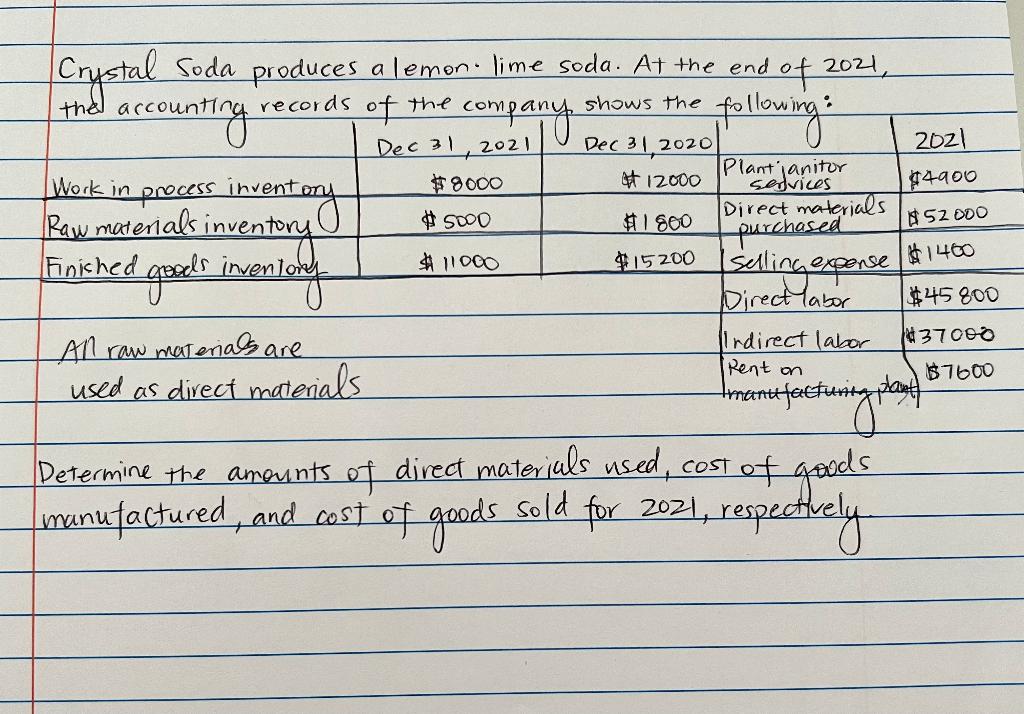 Crystal Soda produces a lemon-lime soda. At the end of 2021,
the accounting records of the company shows the following:
Dec 31, 2021 Dec 31, 2020 2021
Work in process inventory $8000 $12000 Plant janitor services $4900
Raw materials inventory $5000 $1800 Direct materials purchased $52000
Finished goods inventory $11000 $15200 Selling expense $1400
Direct labor $45800
Indirect labor $37000
Rent on manufacturing plant $7600
All raw materials are
used as direct materials
Determine the amounts of direct materials used, cost of goods
manufactured, and cost of goods sold for 2021, respectively.